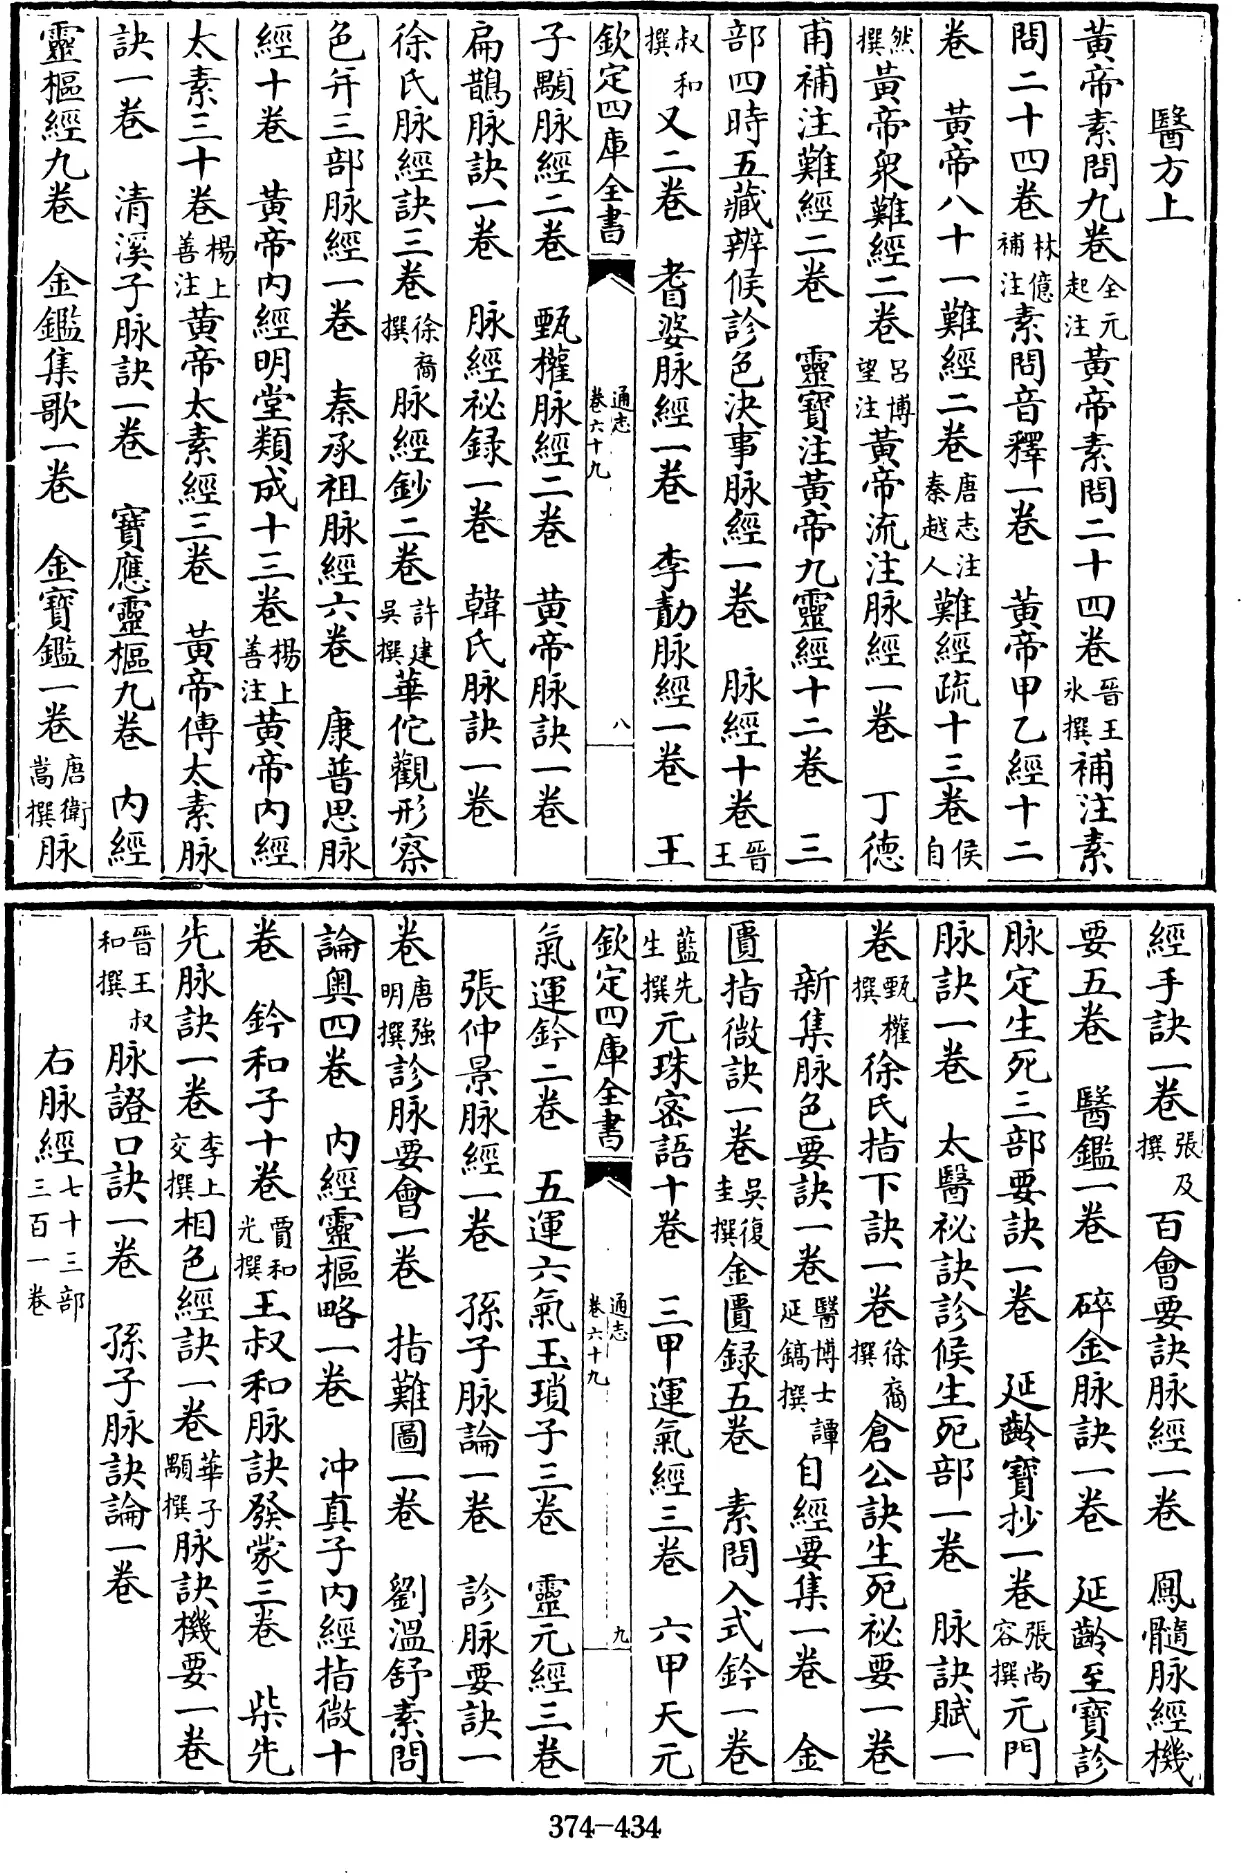 醫方上
黃帝素問九卷全元起注黃帝素問二十四卷晉王氷撰補注素
問二十四卷林億補注素問音釋一卷　黃帝甲乙經十二
卷　黃帝八十一難經二卷唐志注秦越人難經疏十三卷侯自
然撰黃帝衆難經二卷呂博望注黃帝流注脉經一卷　丁德
甫補注難經二卷　靈寶注黃帝九靈經十二卷　三
部四時五藏辨候診色決事脉經一卷　脉經十卷晉王
叔和撰又二卷　耆婆脉經一卷　李勣脉經一卷　王
欽定四庫全書　通志卷六十九　八
子顒脉經二卷　甄權脉經二卷　黃帝脉訣一卷
扁鵲脉訣一卷　脉經祕録一卷　韓氏脉訣一卷
徐氏脉經訣三卷徐裔撰脉經鈔二卷許建吳撰華佗觀形察
色并三部脉經一卷　秦承祖脉經六卷　康普思脉
經十卷　黃帝內經明堂類成十三卷楊上善注黃帝內經
太素三十卷楊上善注黃帝太素經三卷　黃帝傳太素脉
訣一卷　清溪子脉訣一卷　寶應靈樞九卷　內經
靈樞經九卷　金鑑集歌一卷　金寶鑑一卷唐衛嵩撰脉
經手訣一卷張及撰百會要訣脉經一卷　鳳髓脉經機
要五卷　醫鑑一卷　碎金脉訣一卷　延齡至寶診
脉定生死三部要訣一卷　延齡寶抄一卷張尚容撰元門
脉訣一卷　太醫祕訣診候生死部一卷　脉訣賦一
卷甄權撰徐氏指下訣一卷徐裔撰倉公訣生死祕要一卷
新集脉色要訣一卷醫博士譚延鎬撰自經要集一卷　金
匱指微訣一卷吳復圭撰金匱録五卷　素問入式鈐一卷
藍先生撰元珠密語十卷　三甲運氣經三卷　六甲天元
欽定四庫全書　通志卷六十九　九
氣運鈐二卷　五運六氣玉瑣子三卷　靈元經三卷
張仲景脉經一卷　孫子脉論一卷　診脉要訣一
卷唐強明撰診脉要會一卷　指難圖一卷　劉溫舒素問
論奧四卷　內經靈樞略一卷　冲真子內經指微十
卷　鈐和子十卷賈和光撰王叔和脉訣發蒙三卷　柴先
先脉訣一卷李上交撰相色經訣一卷華子顒撰脉訣機要一卷
晉王叔和撰脉證口訣一卷　孫子脉訣論一卷
右脉經七十三部三百一卷
374-434